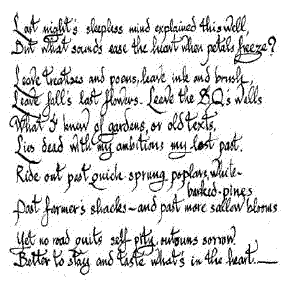 Last night's sleepless mind explained this well,
But what sounds ease the heart when petals freeze?
Leave treatises and poems, leave ink and brush,
Leave fall's last flowers. Leave the B.Q.'s wells
What I knew of gardens, or old texts,
Lies dead with my ambitions my lost past.
Ride out past quick sprung poplars, white-
barked-pines
Past farmer's shacks—and past more sallow blooms
Yet no road quits self-pity, outruns sorrow.
Better to stay and taste what's in the heart.—